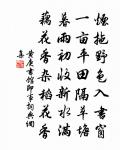 煙拖野色入書窗
一百平田隔草塘
暮雨初收新水滿
藕花香雜稻花香
黃庚書館即事詞典網